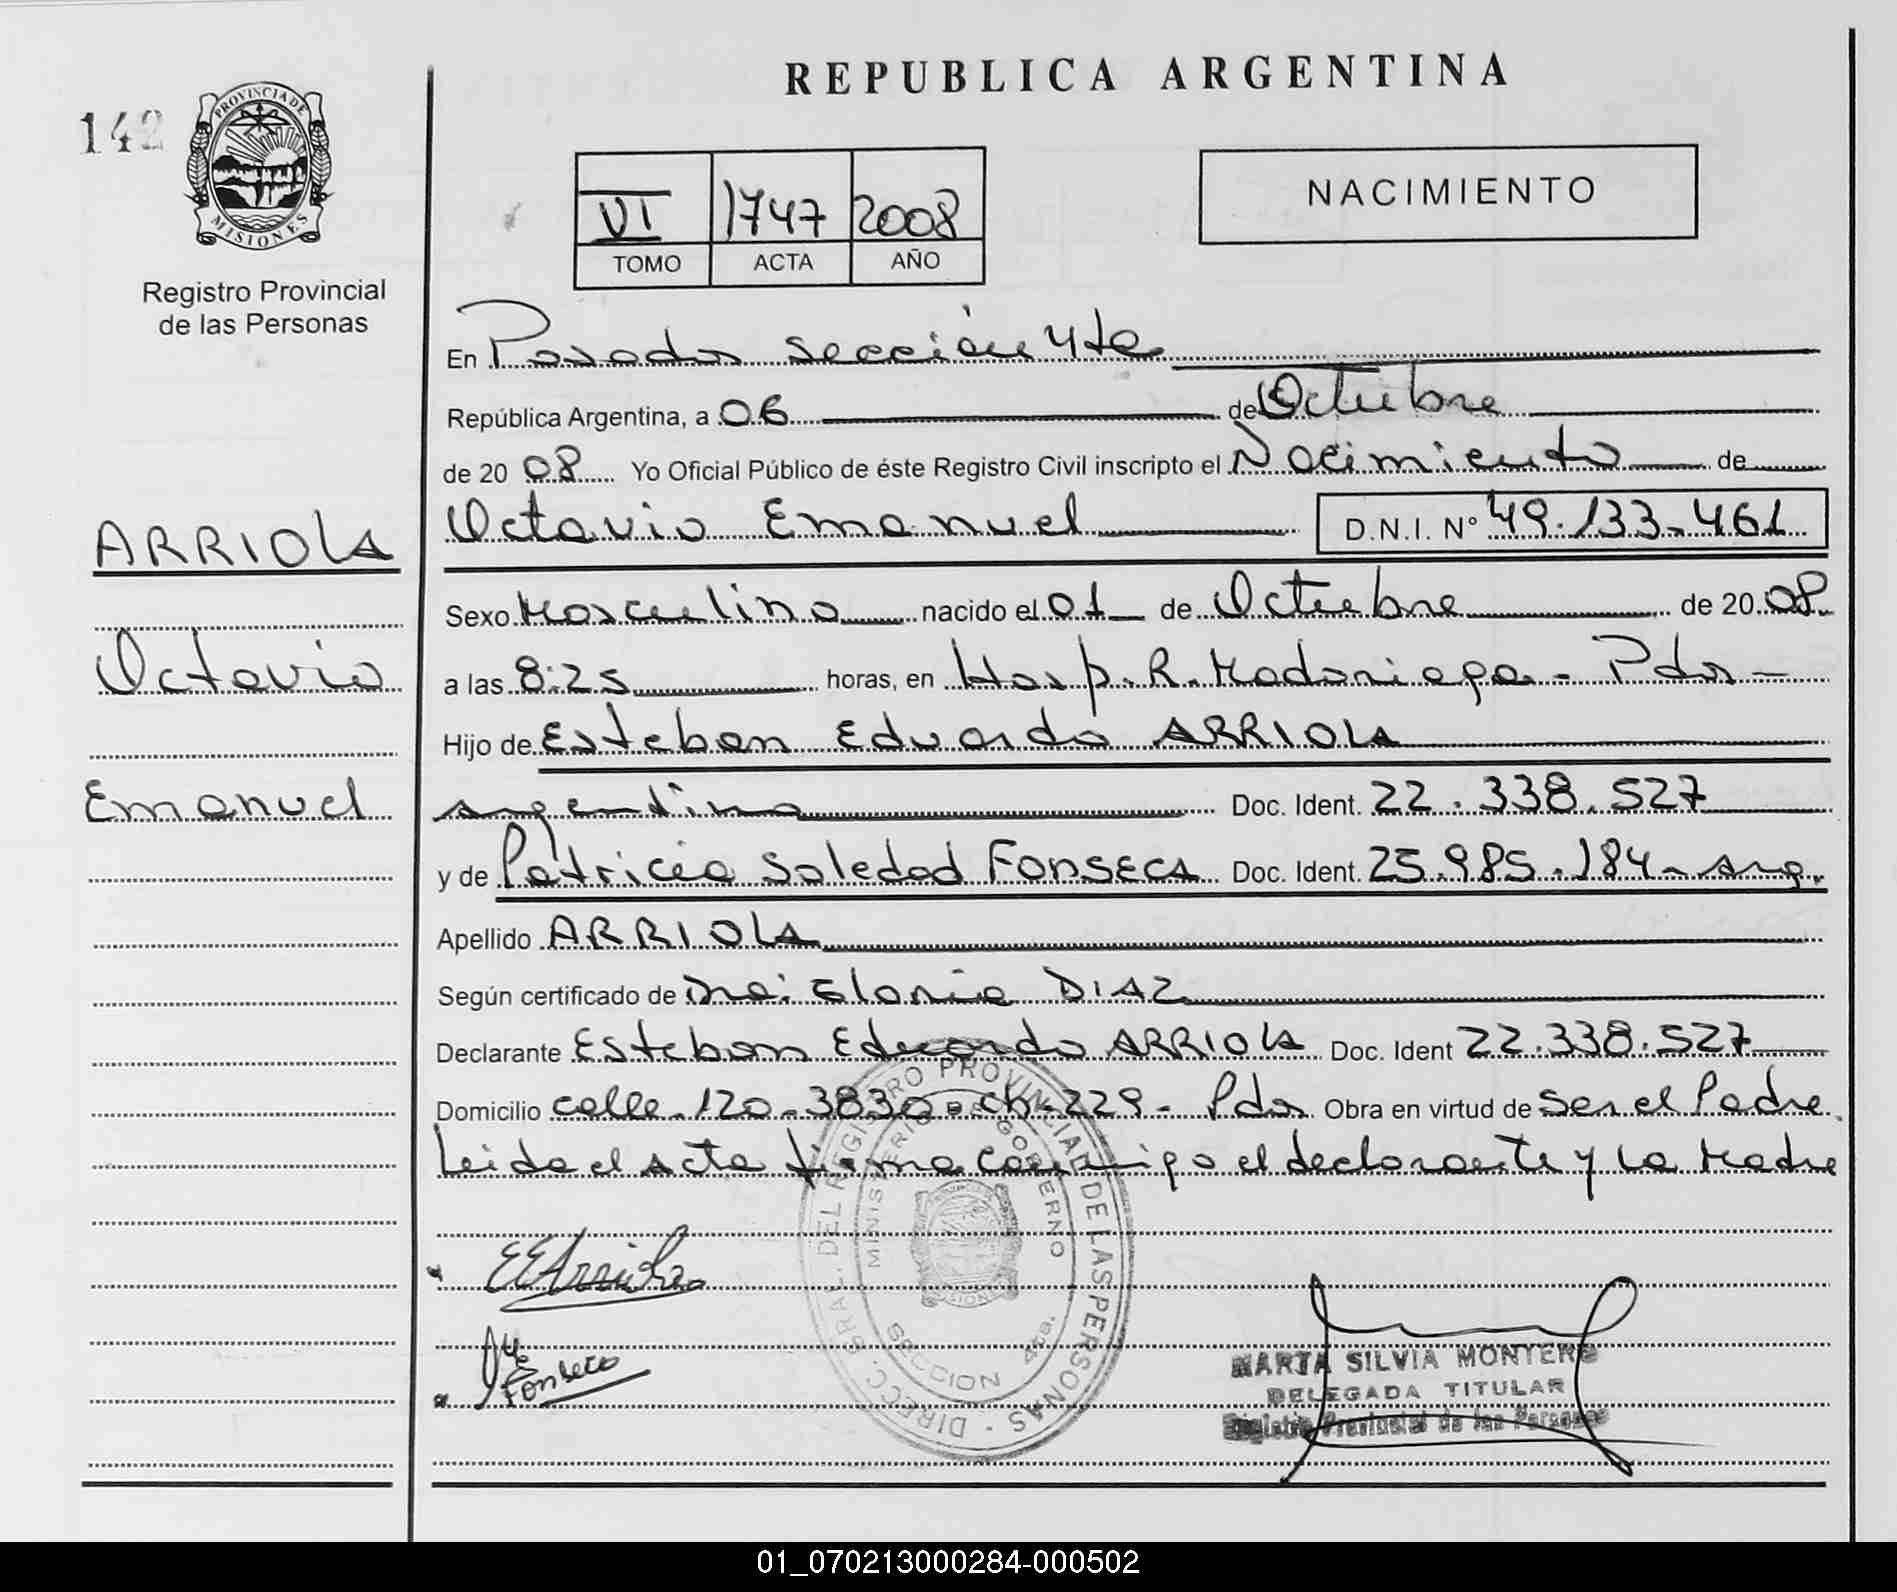 REPUBLICA ARGENTINA
142
PROVINCIA DE
MISIONES
Registro Provincial
de las Personas
VI 1747 2008
TOMO ACTA AÑO
NACIMIENTO
En Posadas sección 4ta
República Argentina, a 06 de Octubre
de 20 08 Yo Oficial Público de éste Registro Civil inscripto el Nacimiento de
Octavio Emanuel D.N.I. N° 49.133.461
ARRIOLA
Octavio
Emanuel
Sexo Masculino nacido el 01 de Octubre de 20 08
a las 8:25 horas, en Hosp. R. Madariaga - Pdas -
Hijo de Esteban Eduardo ARRIOLA
argentino Doc. Ident. 22.338.527
y de Patricia Soledad FONSECA Doc. Ident. 25.985.184 - arg.
Apellido ARRIOLA
Según certificado de Dra: Gloria DIAZ
Declarante Esteban Eduardo ARRIOLA Doc. Ident 22.338.527
Domicilio calle 120 - 3830 - ch - 229 - Pdas Obra en virtud de Ser el Padre
Leida el acta firma conmigo el declarante y la Madre
DIRECC. GRAL. DEL REGISTRO PROVINCIAL DE LAS PERSONAS
MINISTERIO DE GOBIERNO
SECCION 4ta.
EEArriola
Fonseca
MARTA SILVIA MONTERO
DELEGADA TITULAR
Registro Provincial de las Personas
01_070213000284-000502